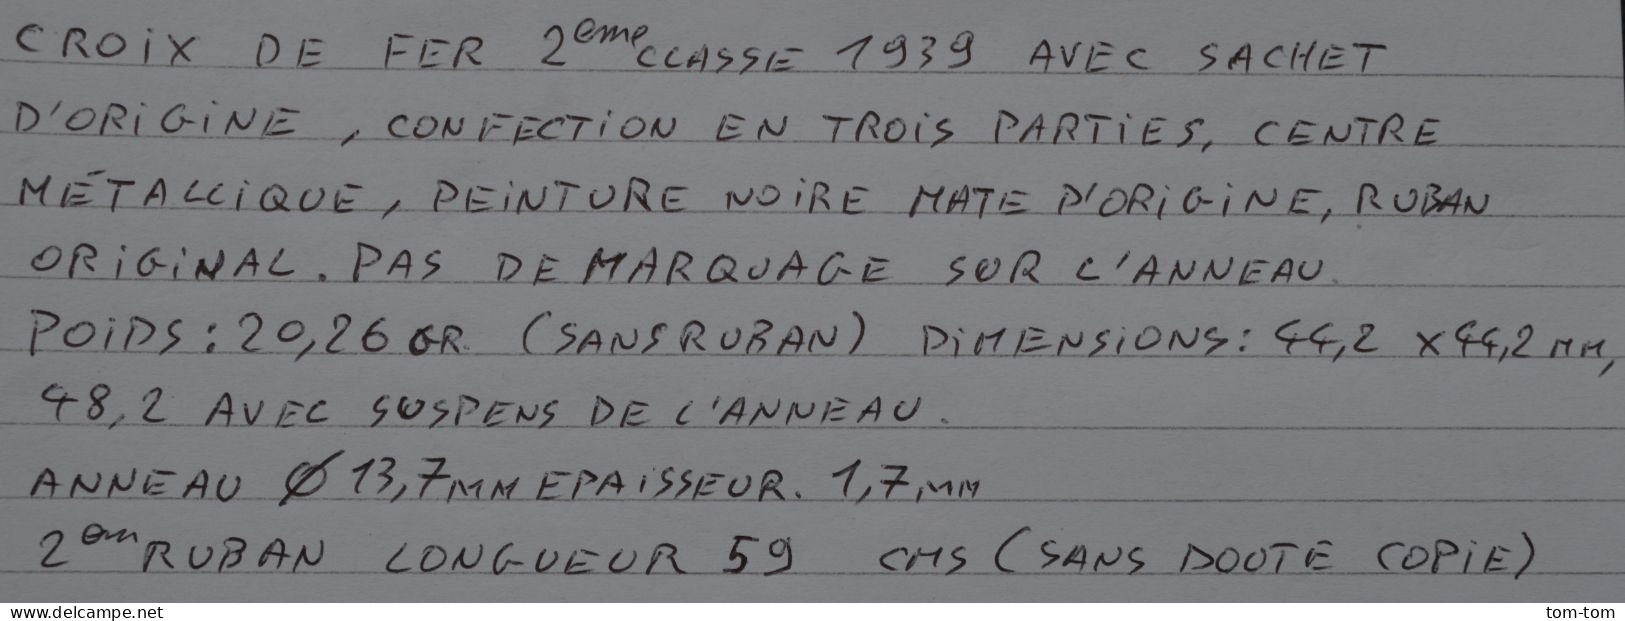 CROiX DE FER 2eme CLASSE 1939 AVEC SACHET
D'ORiGiNE, CONFECTiON EN TROiS PARTiES, CENTRE
MÉTALLiQUE, PEiNTURE NOiRE MATE D'ORiGiNE, RUBAN
ORiGiNAL. PAS DE MARQUAGE SUR L'ANNEAU.
POiDS: 20,26 GR. (SANS RUBAN) DiMENSiONS: 44,2 x 44,2 MM,
48,2 AVEC SUSPENS DE L'ANNEAU.
ANNEAU Ø 13,7MM EPAiSSEUR. 1,7MM
2em RUBAN LONGUEUR 59 CMS (SANS DOUTE COPiE)
www.delcampe.net tom-tom